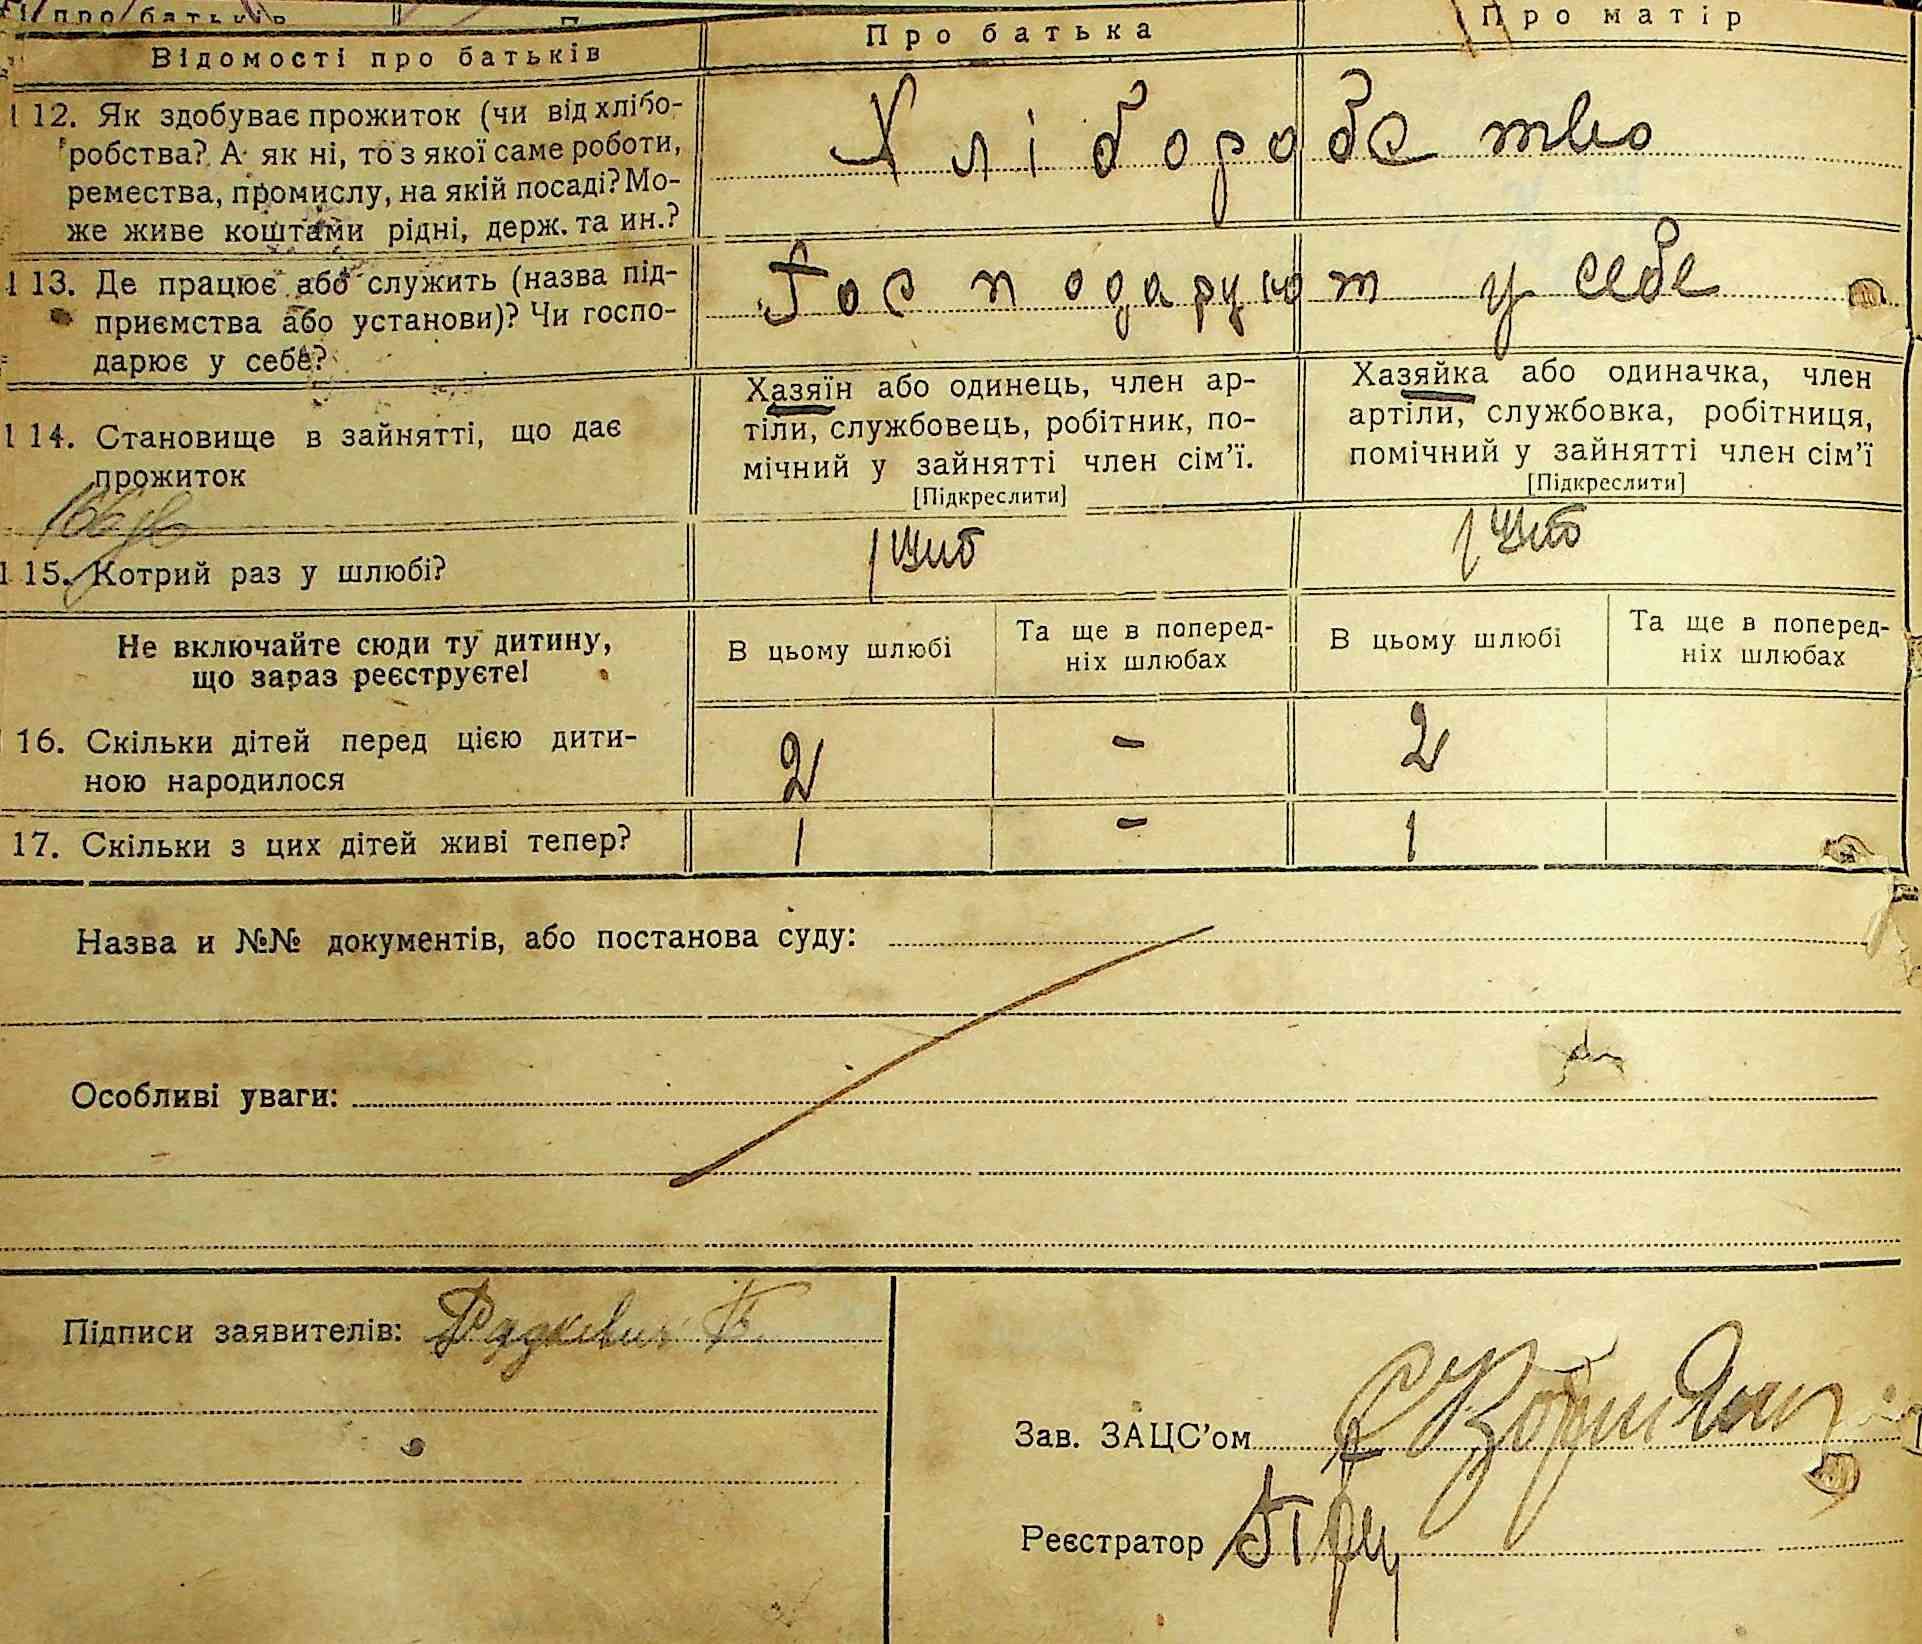 Відомості про батьків
Про батька
Про матір
12. Як здобуває прожиток (чи від хлібо-
робства? А як ні, то з якої саме роботи,
ремества, промислу, на якій посаді? Мо-
же живе коштами рідні, держ. та ин.?
Хліборобство
13. Де працює або служить (назва під-
приємства або установи)? Чи госпо-
дарює у себе?
Господарують у себе
14. Становище в зайнятті, що дає
прожиток
Хазяїн або одинець, член ар-
тіли, службовець, робітник, по-
мічний у зайнятті член сім’ї.
[Підкреслити]
Хазяйка або одиначка, член
артіли, службовка, робітниця,
помічний у зайнятті член сім’ї
[Підкреслити]
15. Котрий раз у шлюбі?
Не включайте сюди ту дитину,
що зараз реєструєте!
В цьому шлюбі
Та ще в поперед-
ніх шлюбах
В цьому шлюбі
Та ще в поперед-
ніх шлюбах
16. Скільки дітей перед цією дити-
ною народилося
2 - 2
17. Скільки з цих дітей живі тепер?
1 - 1
Назва и №№ документів, або постанова суду:
Особливі уваги:
Підписи заявителів:
Зав. ЗАЦС’ом
Реєстратор